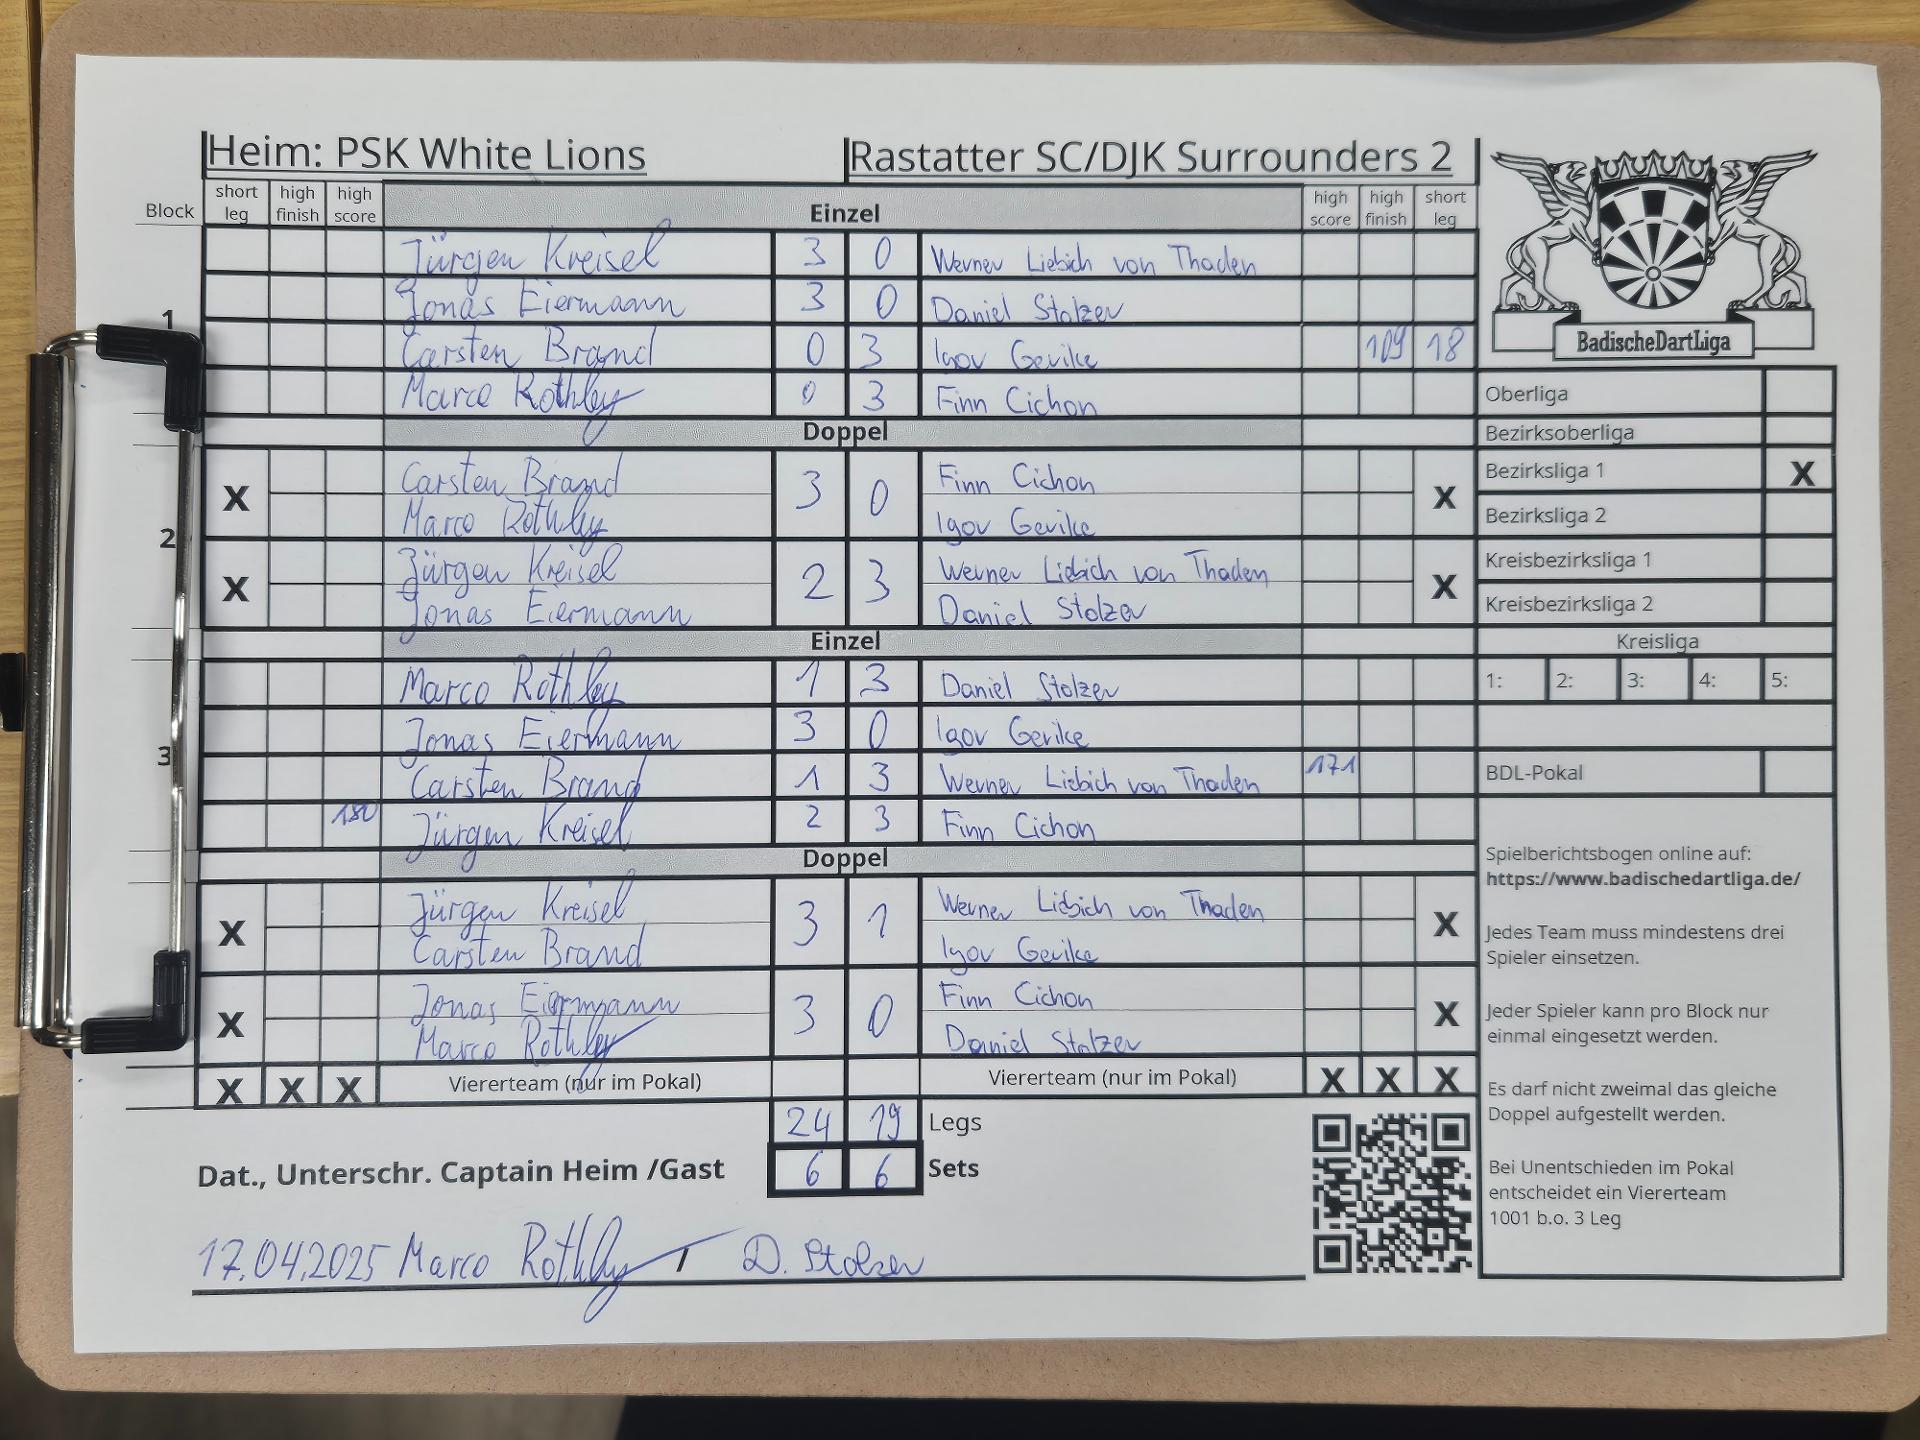 Heim: PSK White Lions Rastatter SC/DJK Surrounders 2
Block short leg high finish high score Einzel high score high finish short leg
Jürgen Kreisel 3 0 Werner Liebich von Thaden
Jonas Eiermann 3 0 Daniel Stolzer
1
Carsten Brand 0 3 Igor Gerike 109 18
Marco Rothley 0 3 Finn Cichon
Doppel
Carsten Brand Finn Cichon
X 3 0 X
Marco Rothley Igor Gerike
2
Jürgen Kreisel Werner Liebich von Thaden
X 2 3 X
Jonas Eiermann Daniel Stolzer
Einzel
Marco Rothley 1 3 Daniel Stolzer
Jonas Eiermann 3 0 Igor Gerike
3
Carsten Brand 1 3 Werner Liebich von Thaden 171
180 Jürgen Kreisel 2 3 Finn Cichon
Doppel
Jürgen Kreisel Werner Liebich von Thaden
X 3 1 X
Carsten Brand Igor Gerike
Jonas Eiermann Finn Cichon
X 3 0 X
Marco Rothley Daniel Stolzer
X X X Viererteam (nur im Pokal) Viererteam (nur im Pokal) X X X
24 19 Legs
Dat., Unterschr. Captain Heim /Gast 6 6 Sets
17.04.2025 Marco Rothley / D. Stolzer
BadischeDartLiga
Oberliga
Bezirksoberliga
Bezirksliga 1 X
Bezirksliga 2
Kreisbezirksliga 1
Kreisbezirksliga 2
Kreisliga
1: 2: 3: 4: 5:
BDL-Pokal
Spielberichtsbogen online auf:
https://www.badischedartliga.de/
Jedes Team muss mindestens drei
Spieler einsetzen.
Jeder Spieler kann pro Block nur
einmal eingesetzt werden.
Es darf nicht zweimal das gleiche
Doppel aufgestellt werden.
Bei Unentschieden im Pokal
entscheidet ein Viererteam
1001 b.o. 3 Leg